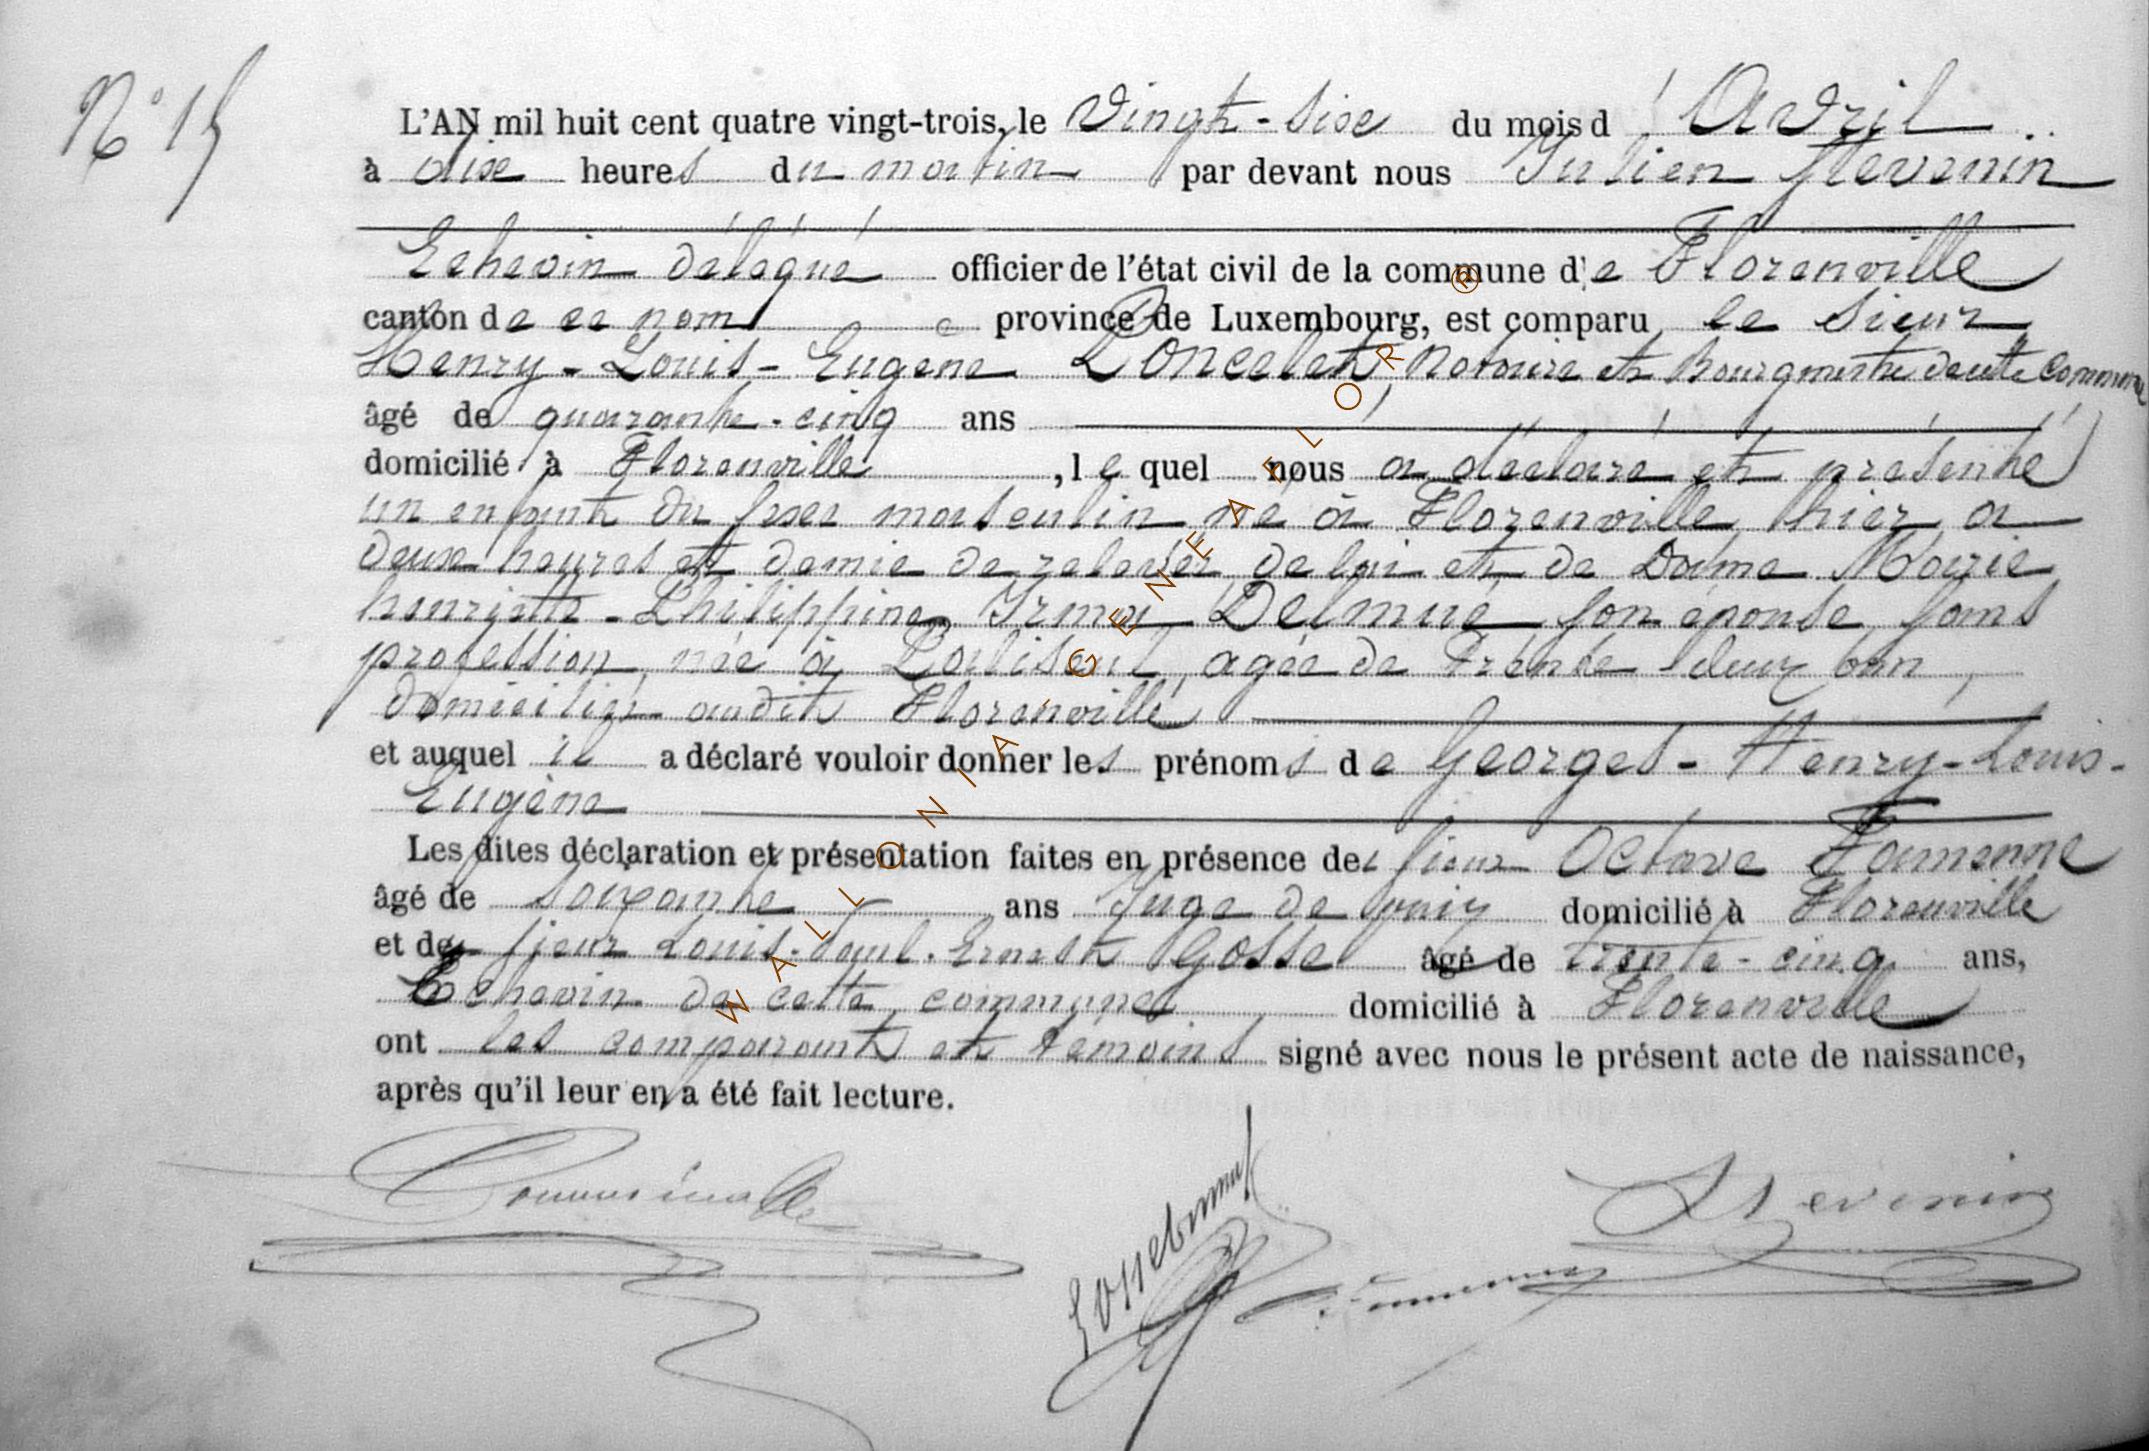 N° 15
L'AN mil huit cent quatre vingt-trois, le Vingt-Six du mois d'Avril
à dix heures du matin par devant nous Julien Stevenin
Echevin délégué officier de l'état civil de la commune de Florenville
canton de ce nom province de Luxembourg, est comparu le Sieur
Henry-Louis-Eugène Poncelet, Notaire et Bourgmestre de cette commune
âgé de quarante-cinq ans
domicilié à Florenville, lequel nous a déclaré et présenté
un enfant du sexe masculin né à Florenville hier à
deux heures et demie de relevée de lui et de Dame Marie
henriette-Philippine Irma Delmué son épouse sans
profession née à Paliseul, agée de trente deux ans,
domiciliée audit Florenville
et auquel il a déclaré vouloir donner les prénoms de Georges-Henry-Louis-
Eugène
Les dites déclaration et présentation faites en présence de sieur Octave Famenne
âgé de soixante ans Juge de paix domicilié à Florenville
et de sieur Louis-Paul-Ernest Gosse âgé de trente-cinq ans,
Echevin de cette commune domicilié à Florenville
ont les comparant et témoins signé avec nous le présent acte de naissance,
après qu'il leur en a été fait lecture.
Stevenin
WALLONIA-GENEAFLOR ®